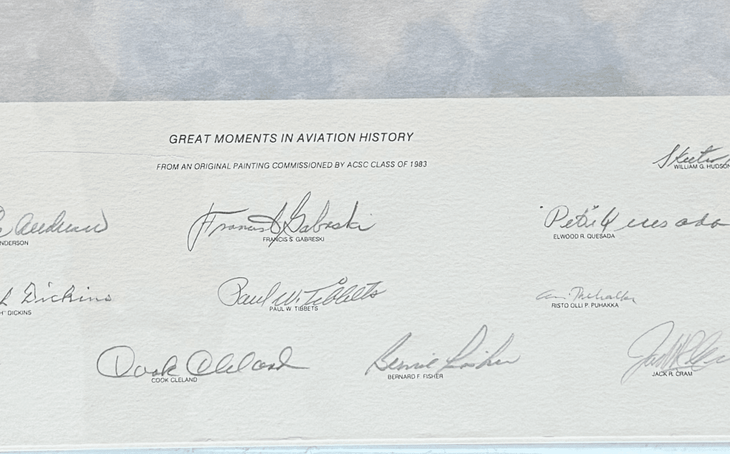 GREAT MOMENTS IN AVIATION HISTORY
FROM AN ORIGINAL PAINTING COMMISSIONED BY ACSC CLASS OF 1983
Skeeter
WILLIAM G. HUDSON
Anderson
NDERSON
Francis S Gabreski
FRANCIS S. GABRESKI
"Pete" Quesada
ELWOOD R. QUESADA
Dickins
H" DICKINS
Paul W. Tibbets
PAUL W. TIBBETS
RISTO OLLI P. PUHAKKA
Cook Cleland
COOK CLELAND
Bernie Fisher
BERNARD F. FISHER
JACK R. CRAM